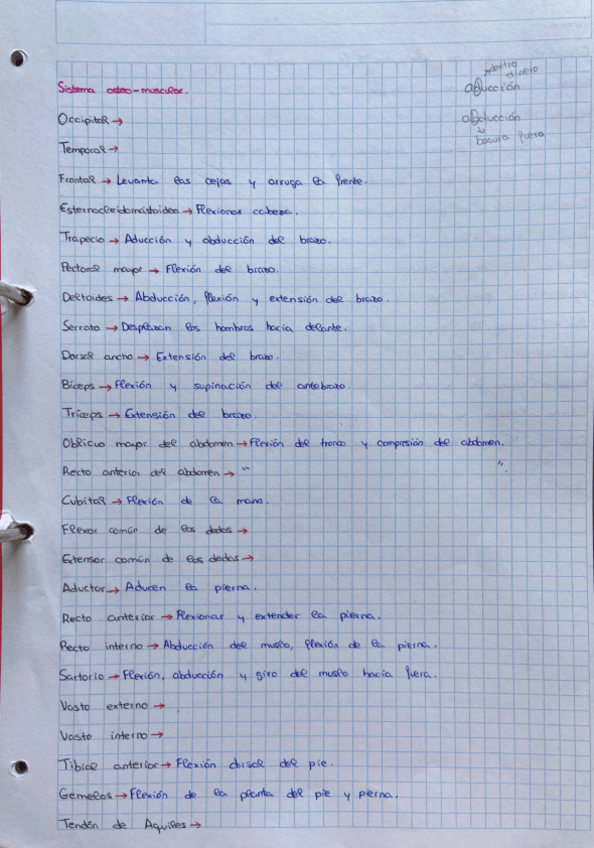 adentro
directo
aducción
Sistema osteo-muscular.
Occipital →
abducción
basura fuera
Temporal →
Frontal → Levanta las cejas y arruga la frente.
Esternocleidomastoideo → Flexionar cabeza.
Trapecio → Aducción y abducción del brazo.
Pectoral mayor → Flexión del brazo.
Deltoides → Abducción, flexión y extensión del brazo.
Serrato → Desplazan los hombros hacia delante.
Dorsal ancho → Extensión del brazo.
Bíceps → Flexión y supinación del antebrazo.
Tríceps → Extensión del brazo.
Oblicuo mayor del abdomen → Flexión del tronco y compresión del abdomen.
Recto anterior del abdomen → " ".
Cubital → Flexión de la mano.
Flexor común de los dedos →
Extensor común de los dedos →
Aductor → Aducen la pierna.
Recto anterior → Flexionar y extender la pierna.
Recto interno → Abducción del muslo, flexión de la pierna.
Sartorio → Flexión, abducción y giro del muslo hacia fuera.
Vasto externo →
Vasto interno →
Tibial anterior → Flexión dorsal del pie.
Gemelos → Flexión de la planta del pie y pierna.
Tendón de Aquiles →